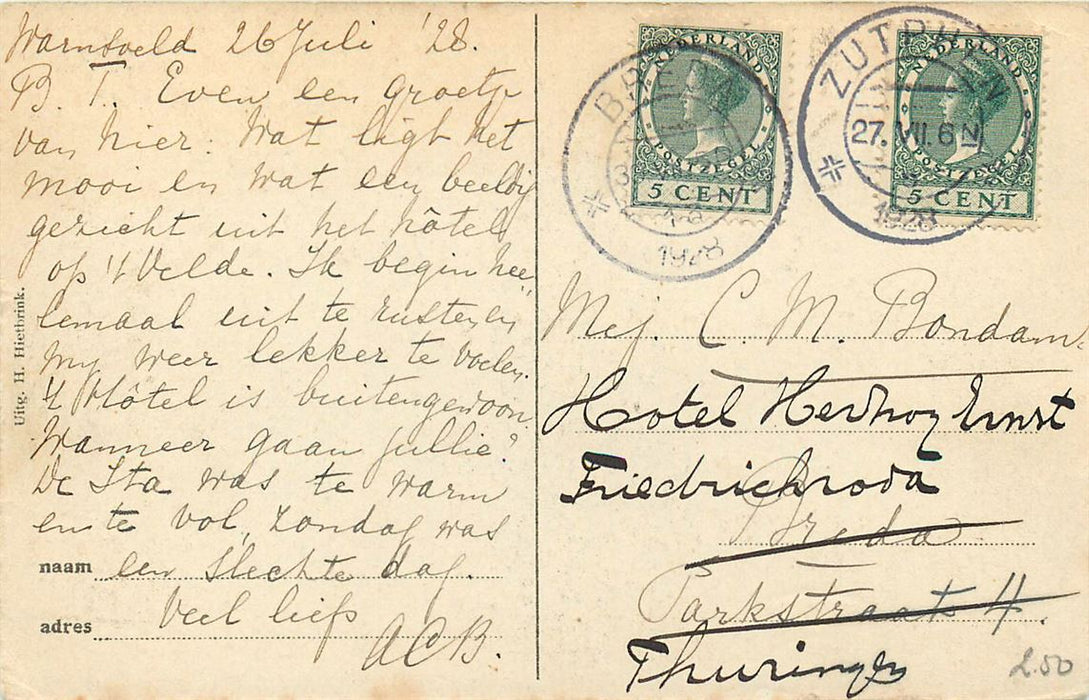 Warnsveld 26 Juli '28.
B. T. Even een groetje
van hier. Wat ligt het
mooi en wat een beeldig
gezicht uit het hôtel
op 't Velde. Ik begin hee
lemaal uit te rusten en
my weer lekker te voelen.
't Hôtel is buitengewoon.
Wanneer gaan jullie?
De Sta was te warm
en te vol, Zondag was
naam een slechte dag.
Veel liefs
adres
ACB.
Uitg. H. Hietbrink.
NEDERLAND
POSTZEGEL
5 CENT
BREDA
1928
NEDERLAND
POSTZEGEL
5 CENT
ZUTPHEN
27.VII.6N
1928
Mej. C. M. Bondam.
Hotel Herzog Ernst
Friedrichroda
Breda
Parkstraat 4.
Thuringen
2.00